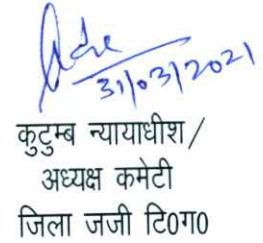 31/03/2021
कुटुम्ब न्यायाधीश/
अध्यक्ष कमेटी
जिला जजी टि0ग0